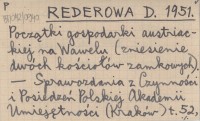 P
REDEROWA D. 1951.
Początki gospodarki austriac-
kiej na Wawelu (zniesienie
dwoch kościołów zamkowych).
— Sprawozdania z Czynności
i Posiedzeń Polskiej Akademii
Umiejętności (Kraków) t.52,